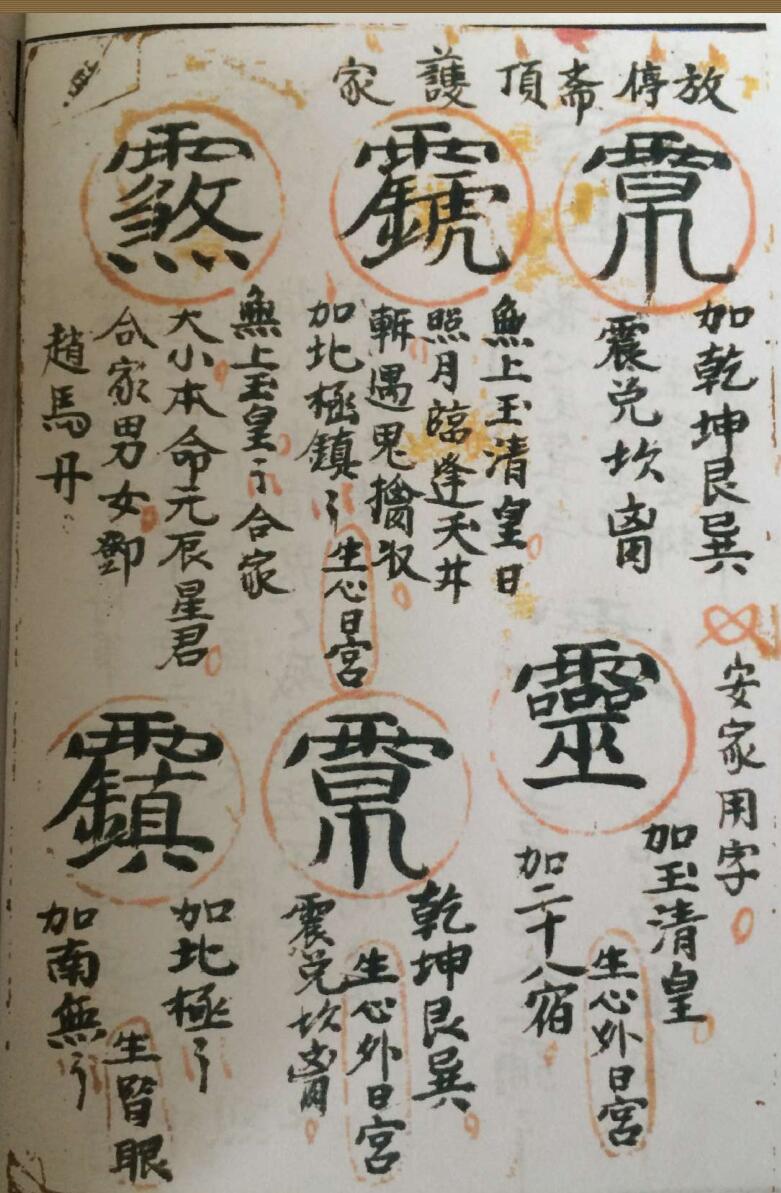 放停斋頂護家
加乾坤艮巽
震兑坎离
無上玉清皇日
照月臨逢天井
斬遇鬼擒收
加北極鎮
生心日宮
無上玉皇
合家
大小本命元辰星君
合家男女鄧
趙馬丹
煞
安家用字
靈
加玉清皇
生心外日宮
加二十八宿
乾坤艮巽
生心外日宮
震兑坎离
加北極
生眼
加南無